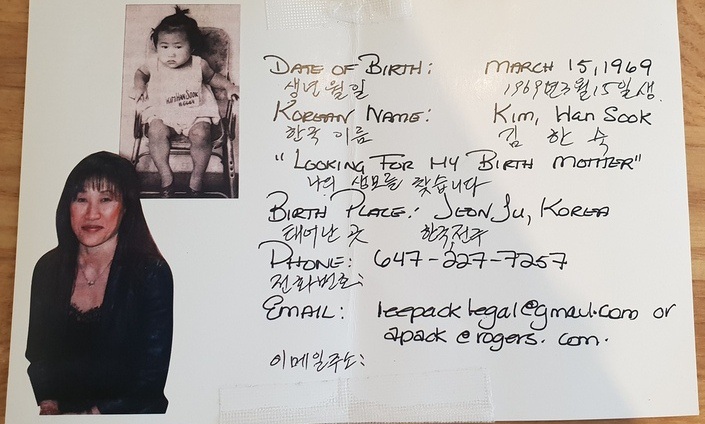 DATE OF BIRTH: MARCH 15, 1969
생년월일 1969년3월15일생
KOREAN NAME: Kim, Han Sook
한국 이름 김 한 숙
"LOOKING FOR MY BIRTH MOTHER"
나의 생모를 찾습니다
BIRTH PLACE: JEONJU, KOREA
태어난 곳 한국전주
PHONE: 647-227-7257
전화번호:
EMAIL: leepacklegal@gmail.com or
apack@rogers.com.
이메일주소: